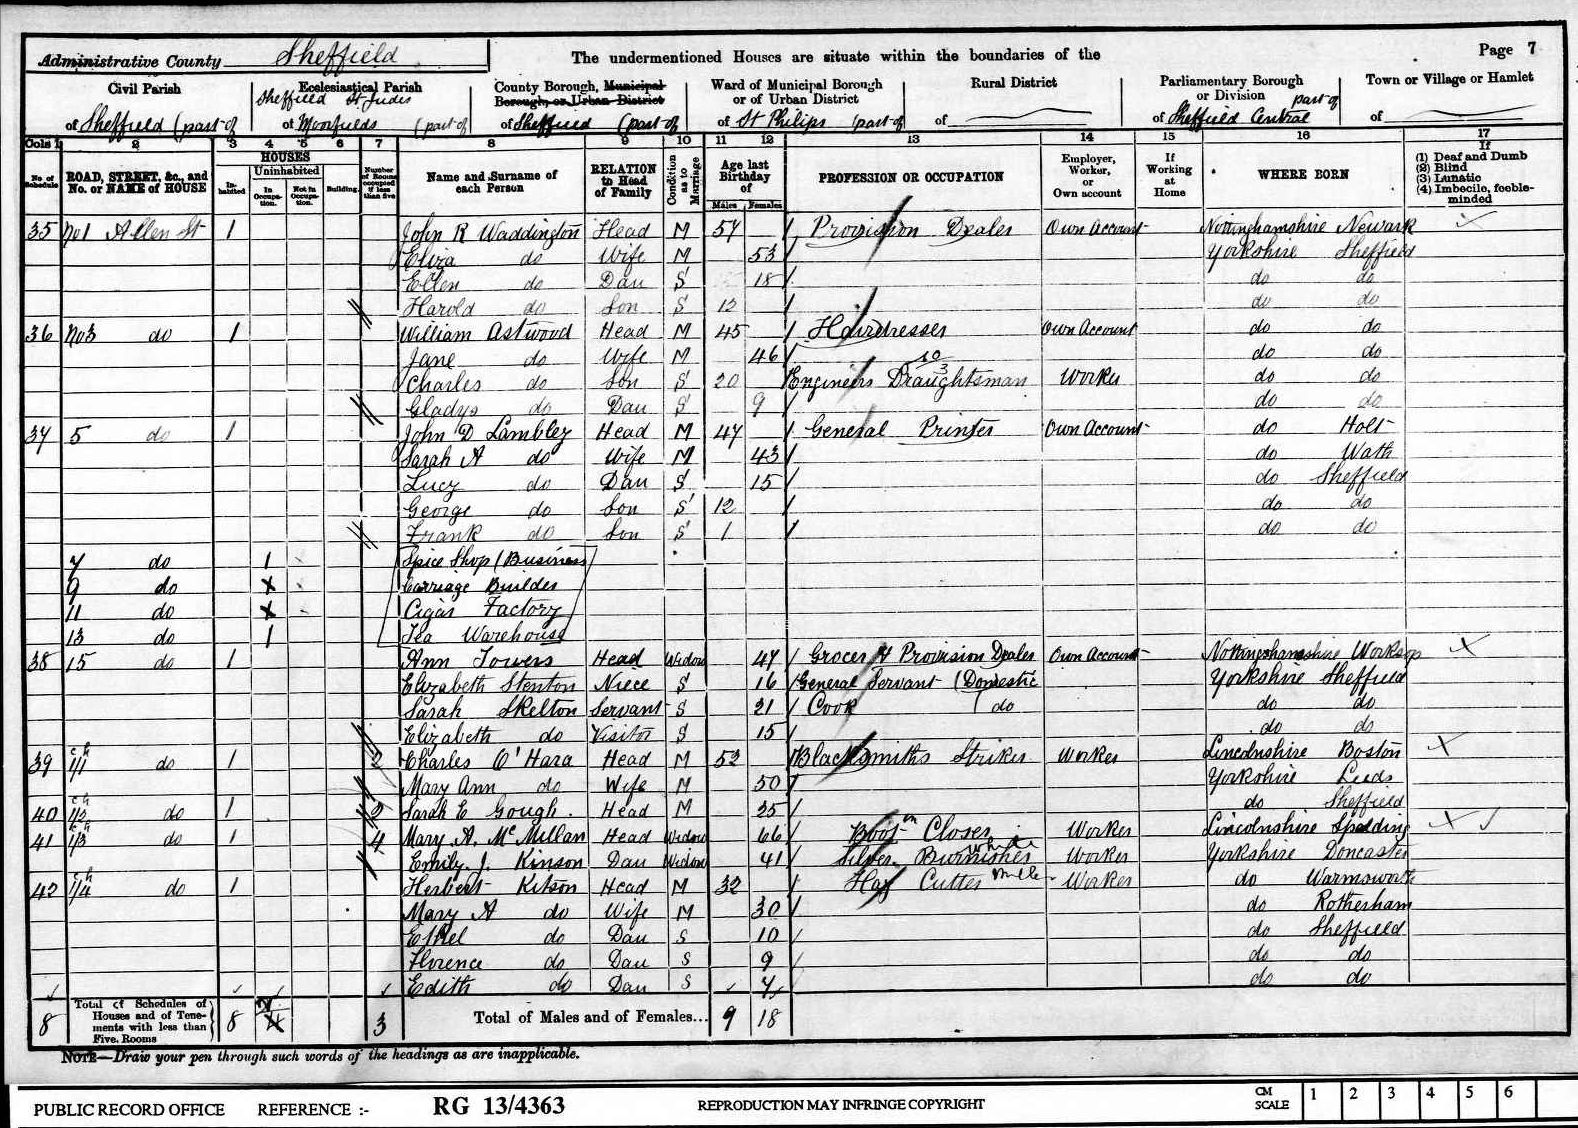 Administrative County Sheffield The undermentioned Houses are situate within the boundaries of the Page 7
Civil Parish Ecclesiastical Parish County Borough, Municipal Borough, or Urban District Ward of Municipal Borough or of Urban District Rural District Parliamentary Borough or Division Town or Village or Hamlet
of Sheffield (part of Sheffield St Judes of Moorfields (part of of Sheffield (part of of St Philips (part of of of Sheffield Central part of of
Cols 1 2 3 4 5 6 7 8 9 10 11 12 13 14 15 16 17
No. of Schedule ROAD, STREET, &c., and No. or NAME of HOUSE HOUSES Inhabited Uninhabited In Occupation. Not in Occupation. Building. Number of Rooms occupied if less than five Name and Surname of each Person RELATION to Head of Family Condition as to Marriage Age last Birthday of Males Females PROFESSION OR OCCUPATION Employer, Worker, or Own account If Working at Home WHERE BORN If (1) Deaf and Dumb (2) Blind (3) Lunatic (4) Imbecile, feeble-minded
35 No1 Allen St 1 John R Waddington Head M 57 Provision Dealer Own Account Nottinghamshire Newark
Eliza do Wife M 53 Yorkshire Sheffield
Ellen do Dau S 18 do do
Harold do Son S 12 do do
36 No3 do 1 William Astwood Head M 45 Hairdresser Own Account do do
Jane do Wife M 46 do do
Charles do Son S 20 Engineers Draughtsman Worker do do
Gladys do Dau S 9 do do
37 5 do 1 John D Lambley Head M 47 General Printer Own Account do Holt
Sarah A do Wife M 43 do Wath
Lucy do Dau S 15 do Sheffield
George do Son S 12 do do
Frank do Son S 1 do do
7 do 1 Spice Shop (Business)
9 do x Carriage Builder
11 do x Cigar Factory
13 do 1 Tea Warehouse
38 15 do 1 Ann Towers Head Widow 47 Grocer & Provision Dealer Own Account Nottinghamshire Worksop
Elizabeth Stenton Niece S 16 General Servant (Domestic Yorkshire Sheffield
Sarah Skelton Servant S 21 Cook (do do do
Elizabeth do Visitor S 15 do do
39 ch 1/1 do 1 Charles O'Hara Head M 52 Blacksmiths Striker Worker Lincolnshire Boston
Mary Ann do Wife M 50 Yorkshire Leeds
40 ch 1/2 do 1 Sarah E Gough Head M 25 do Sheffield
41 ch 1/3 do 1 4 Mary A. Mc Millan Head Widow 66 Boot Closer Worker Lincolnshire Spalding
Emily J. Kinson Dau Widow 41 Silver Burnisher Worker Yorkshire Doncaster
42 ch 1/4 do 1 Herbert Kitson Head M 32 Hay Cutter Worker do Warmsworth
Mary A do Wife M 30 do Rotherham
Ethel do Dau S 10 do Sheffield
Florence do Dau S 9 do do
Edith do Dau S 7 do do
8 Total of Schedules of Houses and of Tenements with less than Five Rooms 8 2 4 3 Total of Males and of Females... 9 18
NOTE—Draw your pen through such words of the headings as are inapplicable.
PUBLIC RECORD OFFICE REFERENCE :- RG 13/4363 REPRODUCTION MAY INFRINGE COPYRIGHT CM SCALE 1 2 3 4 5 6